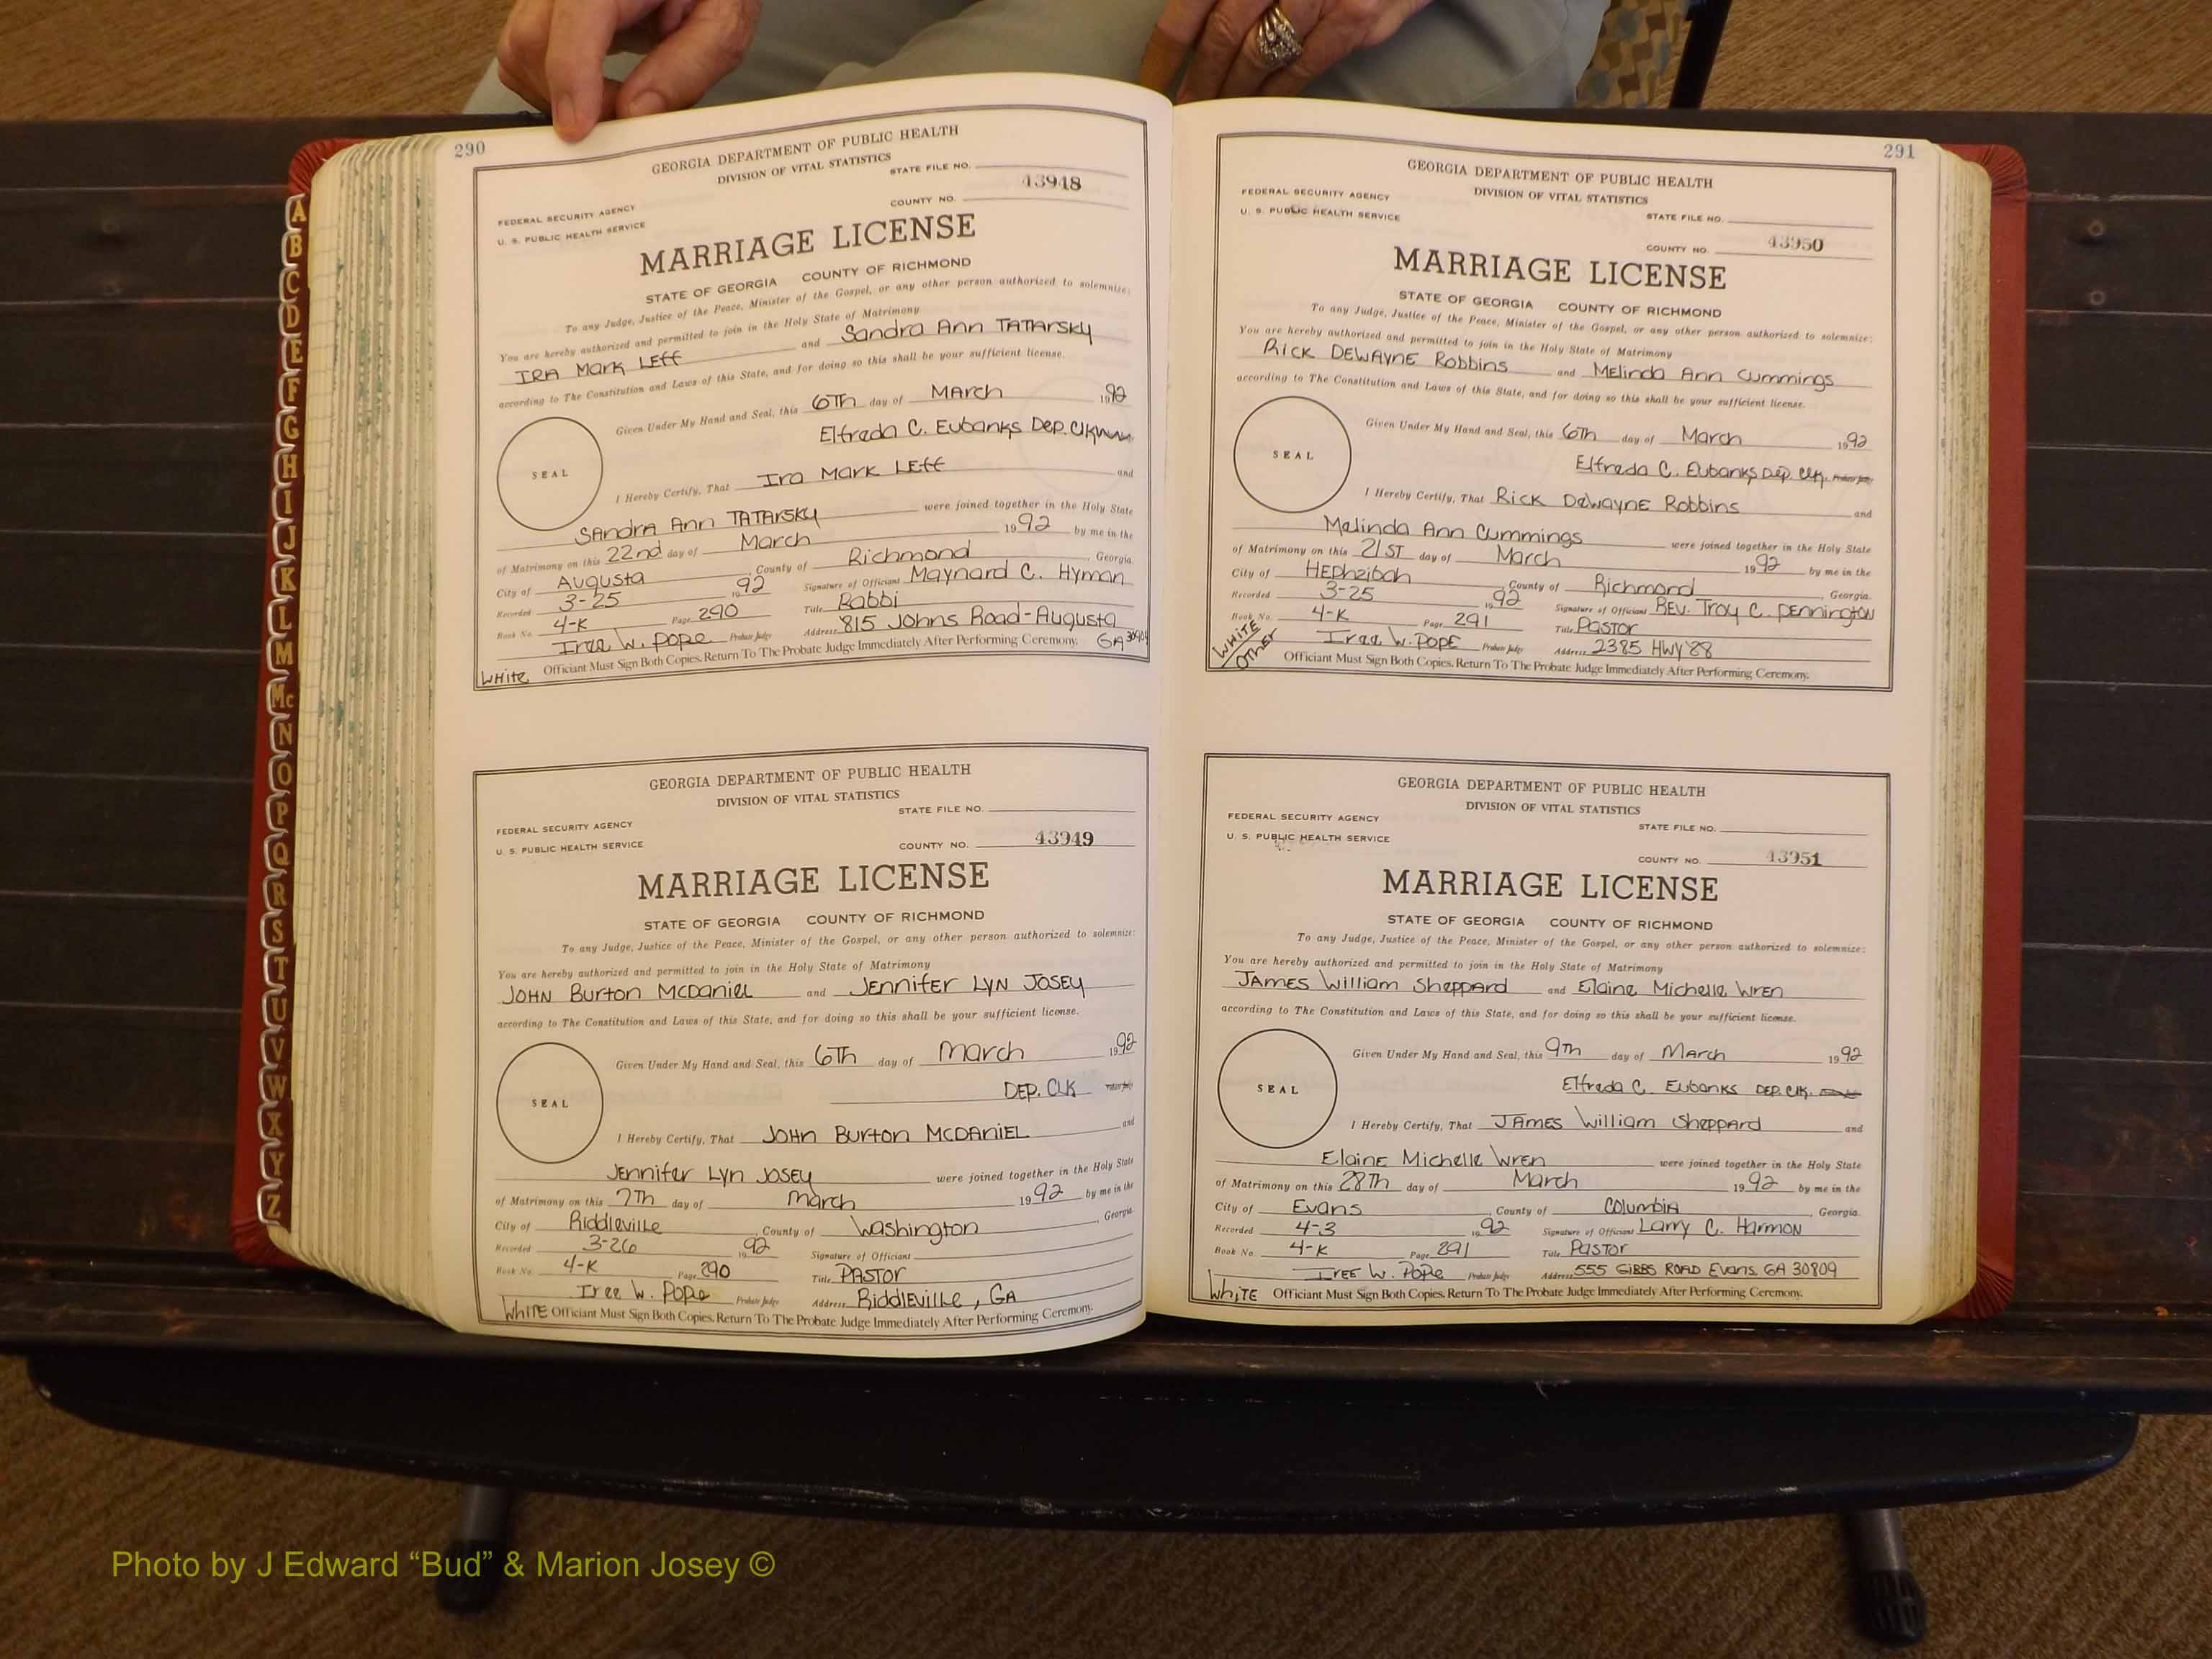 290
GEORGIA DEPARTMENT OF PUBLIC HEALTH
DIVISION OF VITAL STATISTICS
STATE FILE NO.
FEDERAL SECURITY AGENCY
U. S. PUBLIC HEALTH SERVICE
COUNTY NO. 43948
MARRIAGE LICENSE
STATE OF GEORGIA COUNTY OF RICHMOND
To any Judge, Justice of the Peace, Minister of the Gospel, or any other person authorized to solemnize:
You are hereby authorized and permitted to join in the Holy State of Matrimony
IRA Mark Leff and Sandra Ann TATArsky
according to The Constitution and Laws of this State, and for doing so this shall be your sufficient license.
Given Under My Hand and Seal, this 6Th day of MArch 1992
Elfreda C. Eubanks Dep. Clk
SEAL
I Hereby Certify, That Ira Mark Leff and
SAndrA Ann TATArsky were joined together in the Holy State
of Matrimony on this 22nd day of March 1992 by me in the
City of Augusta County of Richmond, Georgia.
Recorded 3-25 1992 Signature of Officiant Maynard C. Hyman
Book No. 4-K Page 290 Title Rabbi
Iree W. Pope Probate Judge Address 815 Johns Road-Augusta
GA
WHite Officiant Must Sign Both Copies. Return To The Probate Judge Immediately After Performing Ceremony.
GEORGIA DEPARTMENT OF PUBLIC HEALTH
DIVISION OF VITAL STATISTICS
STATE FILE NO.
FEDERAL SECURITY AGENCY
U. S. PUBLIC HEALTH SERVICE
COUNTY NO. 43949
MARRIAGE LICENSE
STATE OF GEORGIA COUNTY OF RICHMOND
To any Judge, Justice of the Peace, Minister of the Gospel, or any other person authorized to solemnize:
You are hereby authorized and permitted to join in the Holy State of Matrimony
JOHN Burton McDaniel and Jennifer Lyn Josey
according to The Constitution and Laws of this State, and for doing so this shall be your sufficient license.
Given Under My Hand and Seal, this 6Th day of March 1992
DEP. CLK
SEAL
I Hereby Certify, That JOHN Burton McDANiEL and
Jennifer Lyn Josey were joined together in the Holy State
of Matrimony on this 7Th day of March 1992 by me in the
City of Riddleville County of Washington, Georgia.
Recorded 3-26 1992 Signature of Officiant
Book No. 4-K Page 290 Title PASTOR
Iree W. Pope Probate Judge Address Riddleville, GA
WHITE Officiant Must Sign Both Copies. Return To The Probate Judge Immediately After Performing Ceremony.
291
GEORGIA DEPARTMENT OF PUBLIC HEALTH
DIVISION OF VITAL STATISTICS
FEDERAL SECURITY AGENCY
U. S. PUBLIC HEALTH SERVICE
STATE FILE NO.
COUNTY NO. 43950
MARRIAGE LICENSE
STATE OF GEORGIA COUNTY OF RICHMOND
To any Judge, Justice of the Peace, Minister of the Gospel, or any other person authorized to solemnize:
You are hereby authorized and permitted to join in the Holy State of Matrimony
Rick DEWAYNE Robbins and MElinda Ann Cummings
according to The Constitution and Laws of this State, and for doing so this shall be your sufficient license.
Given Under My Hand and Seal, this 6Th day of March 1992
Elfreda C. Eubanks Dep. Clk.
SEAL
I Hereby Certify, That Rick DeWAYNE Robbins and
Melinda Ann Cummings were joined together in the Holy State
of Matrimony on this 21ST day of March 1992 by me in the
City of HEPhzibah County of Richmond, Georgia.
Recorded 3-25 1992 Signature of Officiant REV. Troy C. Pennington
Book No. 4-K Page 291 Title Pastor
WHITE
OTHER
Iree W. POPE Probate Judge Address 2385 HWY 88
Officiant Must Sign Both Copies. Return To The Probate Judge Immediately After Performing Ceremony.
GEORGIA DEPARTMENT OF PUBLIC HEALTH
DIVISION OF VITAL STATISTICS
FEDERAL SECURITY AGENCY
U. S. PUBLIC HEALTH SERVICE
STATE FILE NO.
COUNTY NO. 43951
MARRIAGE LICENSE
STATE OF GEORGIA COUNTY OF RICHMOND
To any Judge, Justice of the Peace, Minister of the Gospel, or any other person authorized to solemnize:
You are hereby authorized and permitted to join in the Holy State of Matrimony
JAMES William Sheppard and Elaine Michelle Wren
according to The Constitution and Laws of this State, and for doing so this shall be your sufficient license.
Given Under My Hand and Seal, this 9Th day of March 1992
Elfreda C. Eubanks DEP. Clk.
SEAL
I Hereby Certify, That JAMES William Sheppard and
Elaine Michelle Wren were joined together in the Holy State
of Matrimony on this 28Th day of March 1992 by me in the
City of Evans County of Columbia, Georgia.
Recorded 4-3 1992 Signature of Officiant Larry C. Harmon
Book No. 4-K Page 291 Title PASTOR
IREE W. Pope Probate Judge Address 555 GIBBS ROAD Evans, GA 30809
WhiTE Officiant Must Sign Both Copies. Return To The Probate Judge Immediately After Performing Ceremony.
A
B
C
D
E
F
G
H
I
J
K
L
M
Mc
N
O
P
Q
R
S
T
U
V
W
X
Y
Z
Photo by J Edward “Bud” & Marion Josey ©